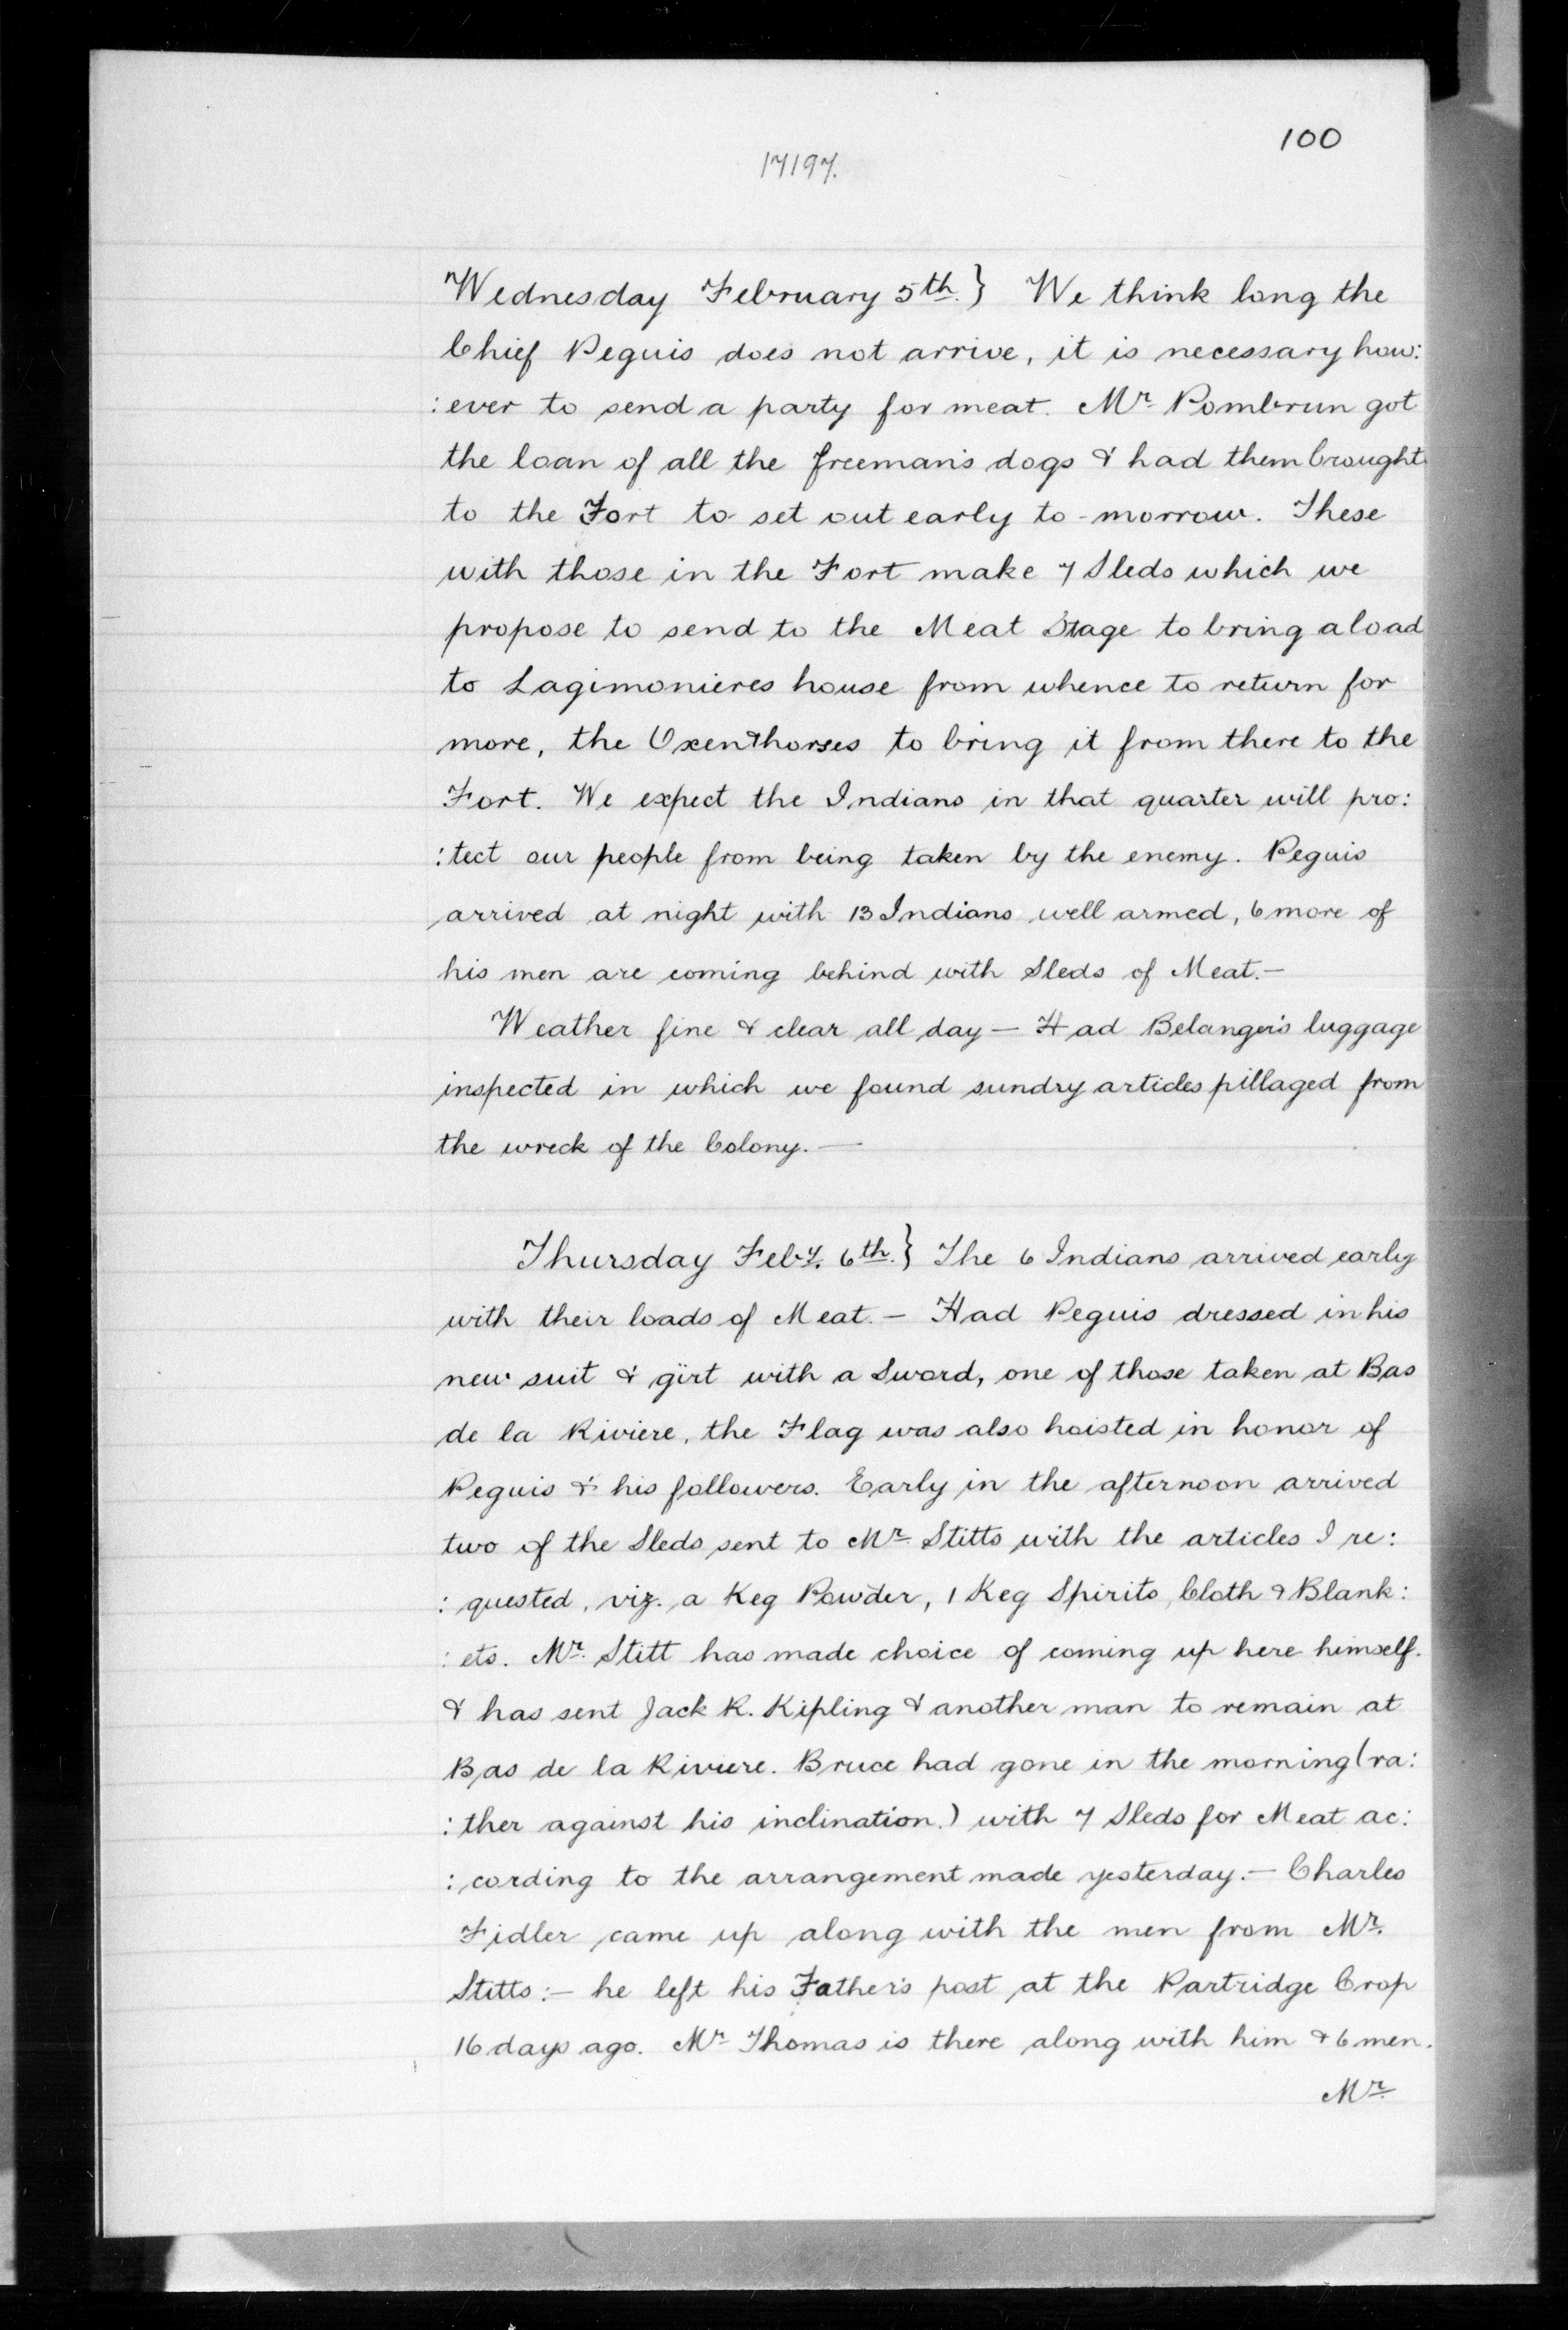 100
17197.
Wednesday February 5th.} We think long the
Chief Peguis does not arrive, it is necessary how:
:ever to send a party for meat. Mr Pombrun got
the loan of all the freeman's dogs & had them brought
to the Fort to set out early to-morrow. These
with those in the Fort make 7 Sleds which we
propose to send to the Meat Stage to bring a load
to Lagimonieres house from whence to return for
more, the Oxen & horses to bring it from there to the
Fort. We expect the Indians in that quarter will pro:
:tect our people from being taken by the enemy. Peguis
arrived at night with 13 Indians well armed, 6 more of
his men are coming behind with Sleds of Meat.—
Weather fine & clear all day — Had Belanger's luggage
inspected in which we found sundry articles pillaged from
the wreck of the Colony. —
Thursday Feby. 6th.} The 6 Indians arrived early
with their loads of Meat. — Had Peguis dressed in his
new suit & girt with a Sword, one of those taken at Bas
de la Riviere, the Flag was also hoisted in honor of
Peguis & his followers. Early in the afternoon arrived
two of the Sleds sent to Mr Stitts with the articles I re:
:quested, viz. a Keg Powder, 1 Keg Spirits, Cloth & Blank:
:ets. Mr. Stitt has made choice of coming up here himself.
& has sent Jack R. Kipling & another man to remain at
Bas de la Riviere. Bruce had gone in the morning (ra:
:ther against his inclination.) with 7 Sleds for Meat ac:
:cording to the arrangement made yesterday. — Charles
Fidler came up along with the men from Mr.
Stitts:— he left his Father's post at the Partridge Crop
16 days ago. Mr Thomas is there along with him & 6 men.
Mr